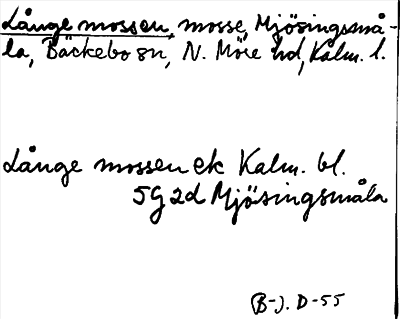 Långe mossen, mosse, Mjösingsmå-
la, Bäckebo sn, N. Möre hd, Kalm. l.
Långe mossen ek Kalm. bl.
5G 2d Mjösingsmåla
B-J. D-55